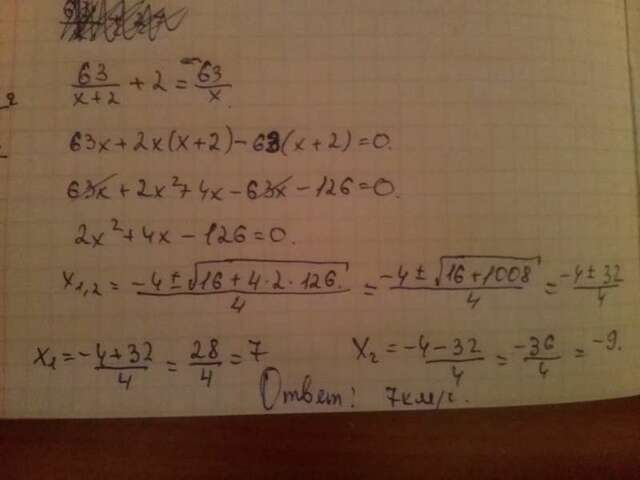 63/(x+2) + 2 = 63/x
63x+2x(x+2)-63(x+2)=0.
63x+2x²+4x-63x-126=0.
2x²+4x-126=0.
x₁,₂ = (-4±√(16+4·2·126))/4 = (-4±√(16+1008))/4 = (-4±32)/4
x₁ = (-4+32)/4 = 28/4 = 7 x₂ = (-4-32)/4 = -36/4 = -9.
Ответ: 7км/г.